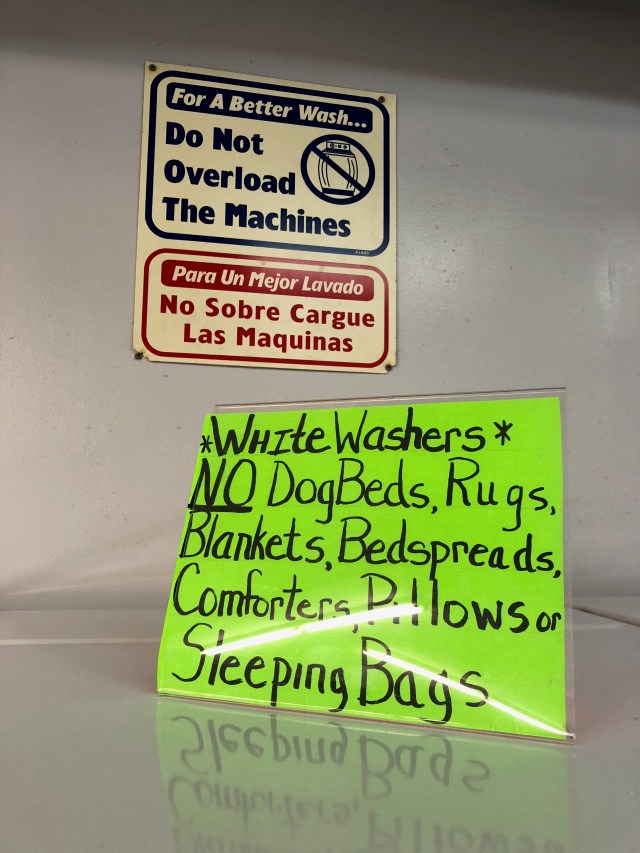 For A Better Wash...
Do Not
Overload
The Machines
Para Un Mejor Lavado
No Sobre Cargue
Las Maquinas
*WHIte Washers*
NO Dog Beds, Rugs,
Blankets, Bedspreads,
Comforters, Pillows or
Sleeping Bags